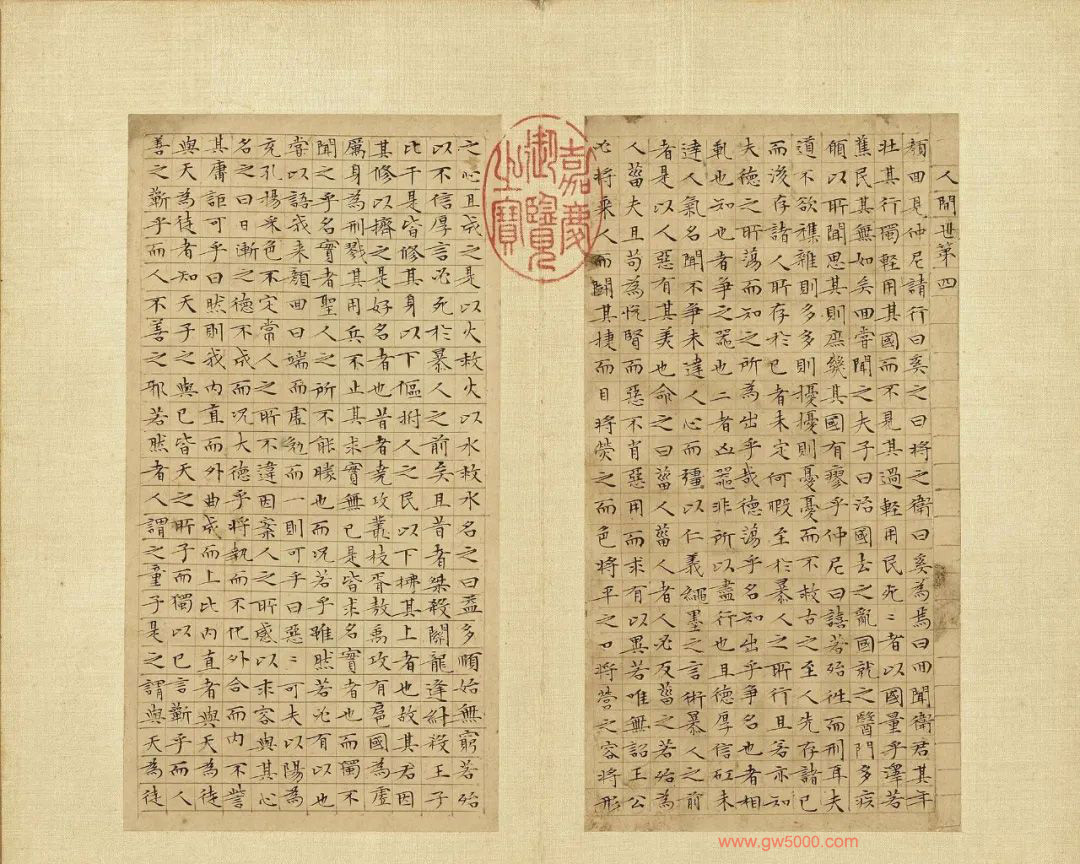 人間世第四
顏回見仲尼請行曰奚之曰將之衛曰奚為焉曰回聞衛君其年
壯其行獨輕用其國而不見其過輕用民死〻者以國量乎澤若
蕉民其無如矣回嘗聞之夫子曰治國去之亂國就之醫門多疾
願以所聞思其則庶幾其國有瘳乎仲尼曰譆若殆往而刑耳夫
道不欲雜雜則多多則擾擾則憂憂而不救古之至人先存諸已
而後存諸人所存於已者未定何暇至於暴人之所行且若亦知
夫德之所蕩而知之所為出乎哉德蕩乎名知出乎爭名也者相
軋也知也者爭之器也二者凶器非所以盡行也且德厚信矼未
達人氣名聞不爭未達人心而彊以仁義繩墨之言術暴人之前
者是以人惡有其美也命之曰菑人菑人者人必反菑之若殆為
人菑夫且苟為悅賢而惡不肖惡用而求有以異若唯無詔王公
必將乘人而鬭其捷而目將熒之而色將平之口將營之容將形
之心且成之是以火救火以水救水名之曰益多順始無窮若殆
以不信厚言必死於暴人之前矣且昔者桀殺關龍逢紂殺王子
比干是皆修其身以下傴拊人之民以下拂其上者也故其君因
其修以擠之是好名者也昔者堯攻叢枝胥敖禹攻有扈國為虛
厲身為刑戮其用兵不止其求實無已是皆求名實者也而獨不
聞之乎名實者聖人之所不能勝也而況若乎雖然若必有以也
嘗以語我来顏回曰端而虛勉而一則可乎曰惡〻可夫以陽為
充孔揚采色不定常人之所不違因案人之所感以求容與其心
名之曰日漸之德不成而況大德乎將執而不化外合而內不訾
其庸詎可乎曰然則我內直而外曲成而上比內直者與天為徒
與天為徒者知天子之與已皆天之所子而獨以已言蘄乎而人
善之蘄乎而人不善之邪若然者人謂之童子是之謂與天為徒
嘉慶御覽之寶
www.gw5000.com